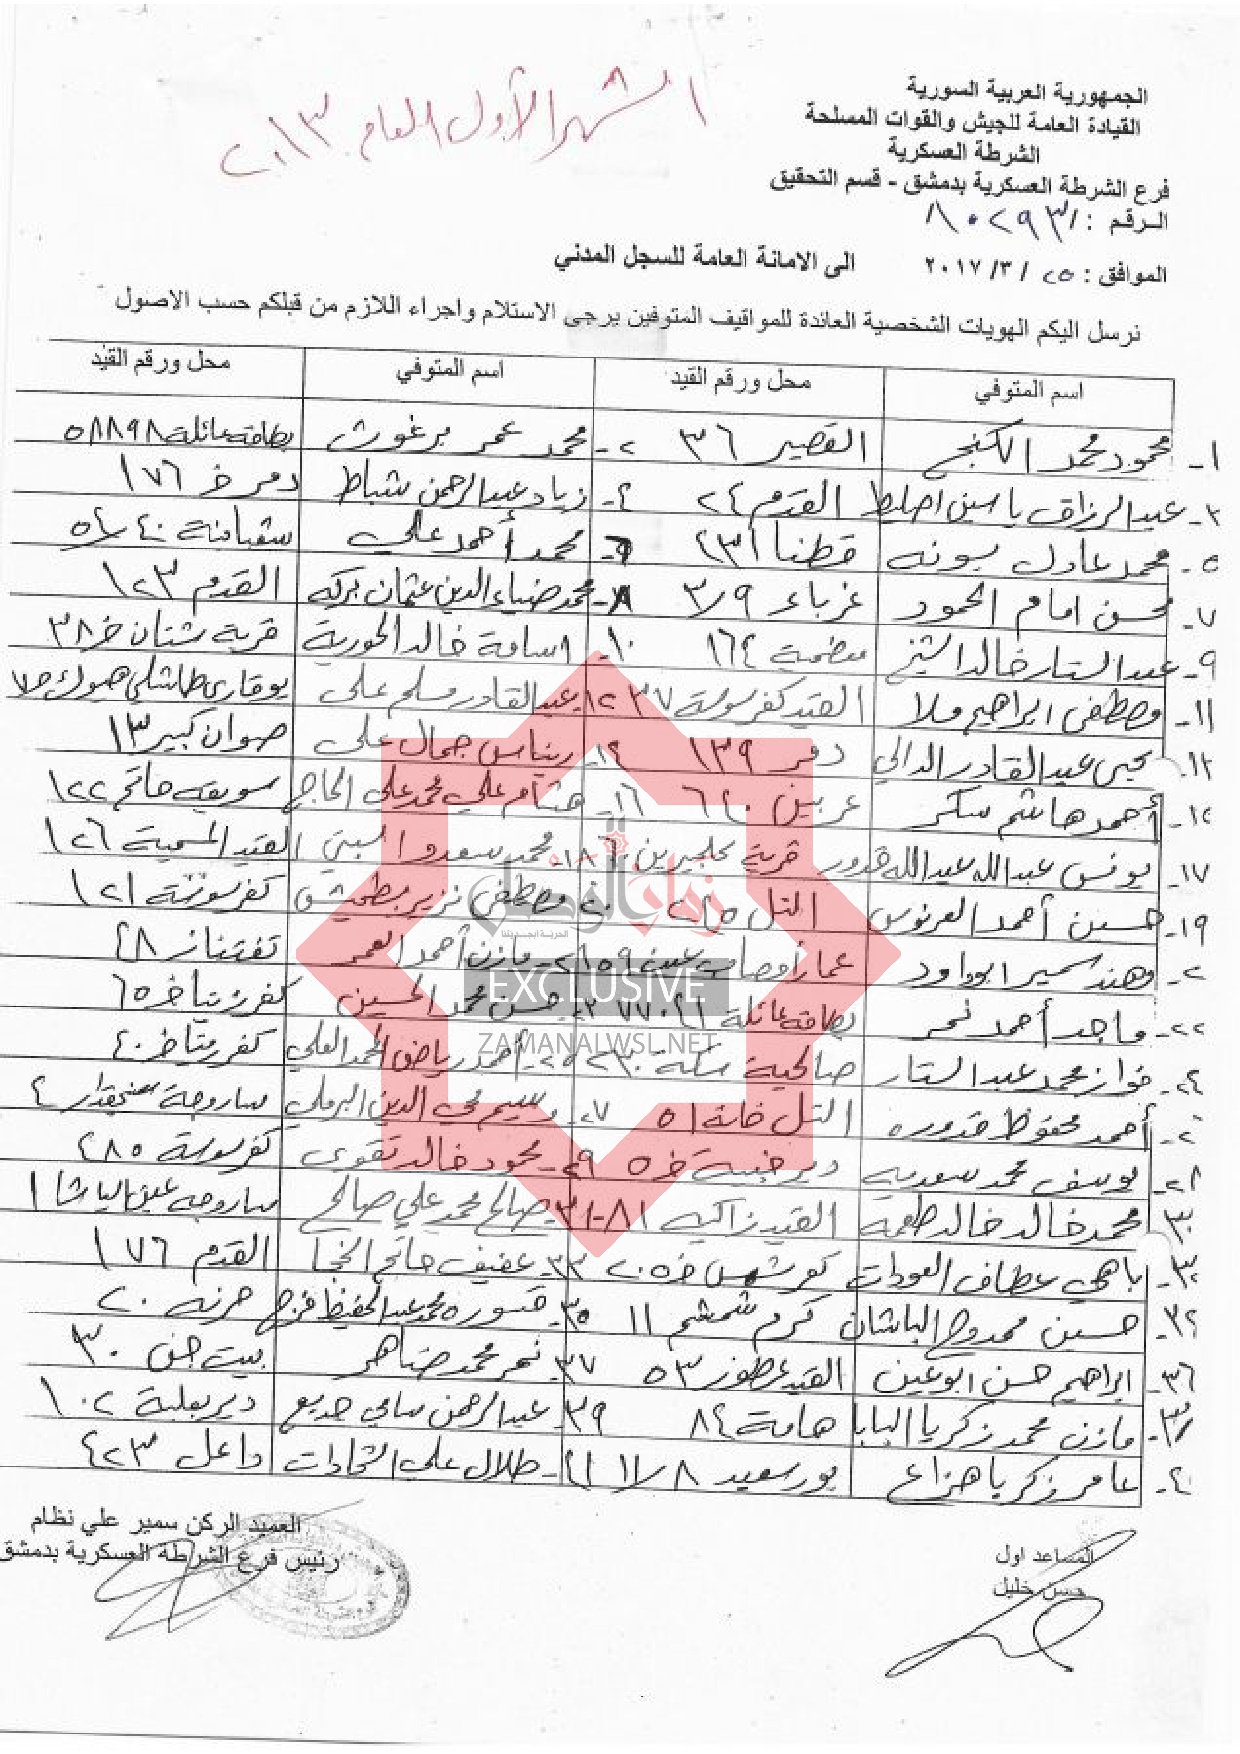 الشهر الأول العام ٢٠١٣
الجمهورية العربية السورية
القيادة العامة للجيش والقوات المسلحة
الشرطة العسكرية
فرع الشرطة العسكرية بدمشق - قسم التحقيق
الرقم :
الموافق : ٢٥ / ٣/ ٢٠١٧ الى الامانة العامة للسجل المدني
نرسل اليكم الهويات الشخصية العائدة للمواقيف المتوفين يرجى الاستلام واجراء اللازم من قبلكم حسب الاصول
اسم المتوفي محل ورقم القيد اسم المتوفي محل ورقم القيد
١- محمود محمد الكنج القصير ٣٦ ٢- محمد عمر برغوث بطاقة عائلة
٣- عبد الرزاق ياسين اصليط القدم ٢٤ ٤- زياد عبد الرحمن شباط دمر خ ١٧٦
٥- محمد عادل بونه قطنا ٢٣١ ٦- محمد أحمد علي
٧- محسن امام الحمود غرباء ٣/٩ ٨- محمد ضياء الدين عثمان بركه القدم ١٢٣
٩- عبد الستار خالد الشيخ معظمية ١٦٤ ١٠- اسامة خالد الحورية قرية خ ٣٨
١١- مصطفى ابراهيم ملا القيد كفرسوسة ٣٧ ١٢- عبد القادر مسلم علي
١٣- يحيى عبد القادر الدالي دمر ١٣٩ ١٤- جمال علي صوان كبير ١٣
أحمد هاشم سكر عربين ٦٤٠ ١٦- هشام علي محمد علي الحاج
١٧- يونس عبدالله عبدالله قدور قرية ١٨- محمد سعدو القيد المسمية ١٢٦
١٩- حسين أحمد العرنوس التل مصطفى نزير كفرسوسة ١٢١
مهند سمير ابو داود عمار مازن أحمد العمر تفتناز ٤٨
٢٢- ماجد أحمد نمر بطاقة عائلة حسن محمد الحسين خ ٦٥
٢٤- فواز محمد عبد الستار صالحية سكة ٢٥- أحمد رياض المحمد العلي خ ٤٠
أحمد محفوظ قدوره التل خانة ٥١ ٢٧- وسيم محي الدين البرملي ساروجة ٤
٢٨- يوسف محمد سعديه دير خبية خ ٥ ٢٩- محمود خالد تقوى كفرسوسة ٢٨٥
٣٠- محمد خالد خالد طعمه القيد زاكيه ٨١ ٣١- صالح محمد علي صالح ساروجه عين الباشا ١
٣٢- باهي عطاف العودات كفر شمس ٣٣- عفيف حاتم الخجا القدم ١٧٦
٣٤- حسين ممدوح الباشان كرم شمشم ١١ ٣٥- قسوره محمد عبد الحفيظ فرج حرنه ٢٠
٣٦- ابراهيم حسن ابو عين القيد ٥٣ ٣٧- نمر محمد ضاهر بيت جن ٣٠
٣٨- مازن محمد زكريا البابا هامة ٨٤ ٣٩- عبد الرحمن سامي جديع دير بعلبة ١٠٢
٤٠- عامر زكريا هزاع بور سعيد ٤١- طلال علي الشحادات داعل ٤٢٣
زمان الوصل
EXCLUSIVE
ZAMANALWSL.NET
المساعد اول
حسن خليل
العميد الركن سمير علي نظام
رئيس فرع الشرطة العسكرية بدمشق